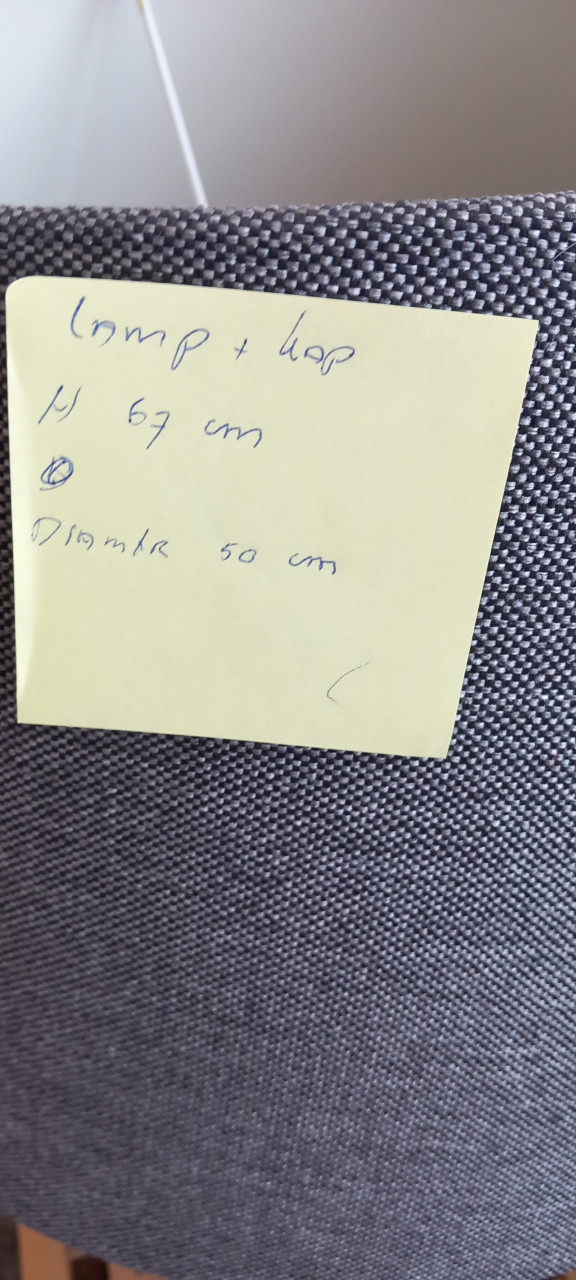 Lamp + kap
H 67 cm
Diamtr 50 cm